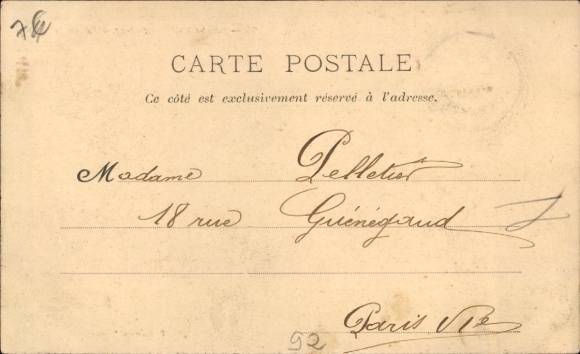 78
CARTE POSTALE
Ce côté est exclusivement réservé à l'adresse.
Madame Pelletier
18 rue Guénégaud
Paris VIe
92